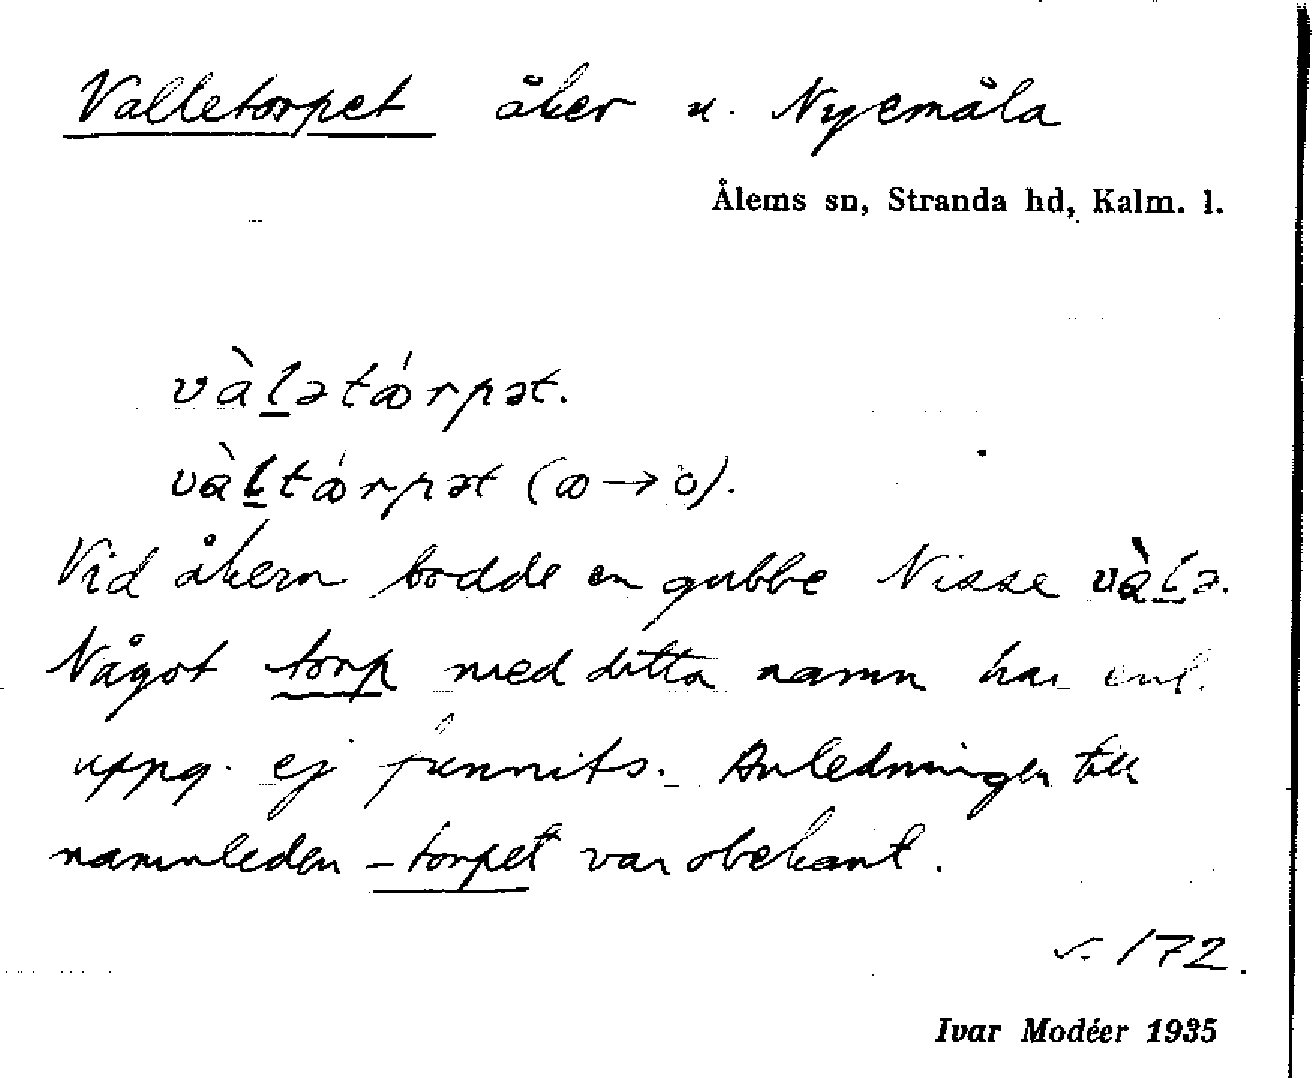 Valletorpet åker u. Nyemåla
Ålems sn, Stranda hd, Kalm. l.
vàl̲ətɷ́rpət.
vàl̲tɷ́rpət (ɷ → ò).
Vid åkern bodde en gubbe Nisse vàl̲ə.
Något torp med detta namn har enl.
uppg. ej funnits. Anledningen till
namnleden -torpet var obekant.
s. 172.
Ivar Modéer 1935